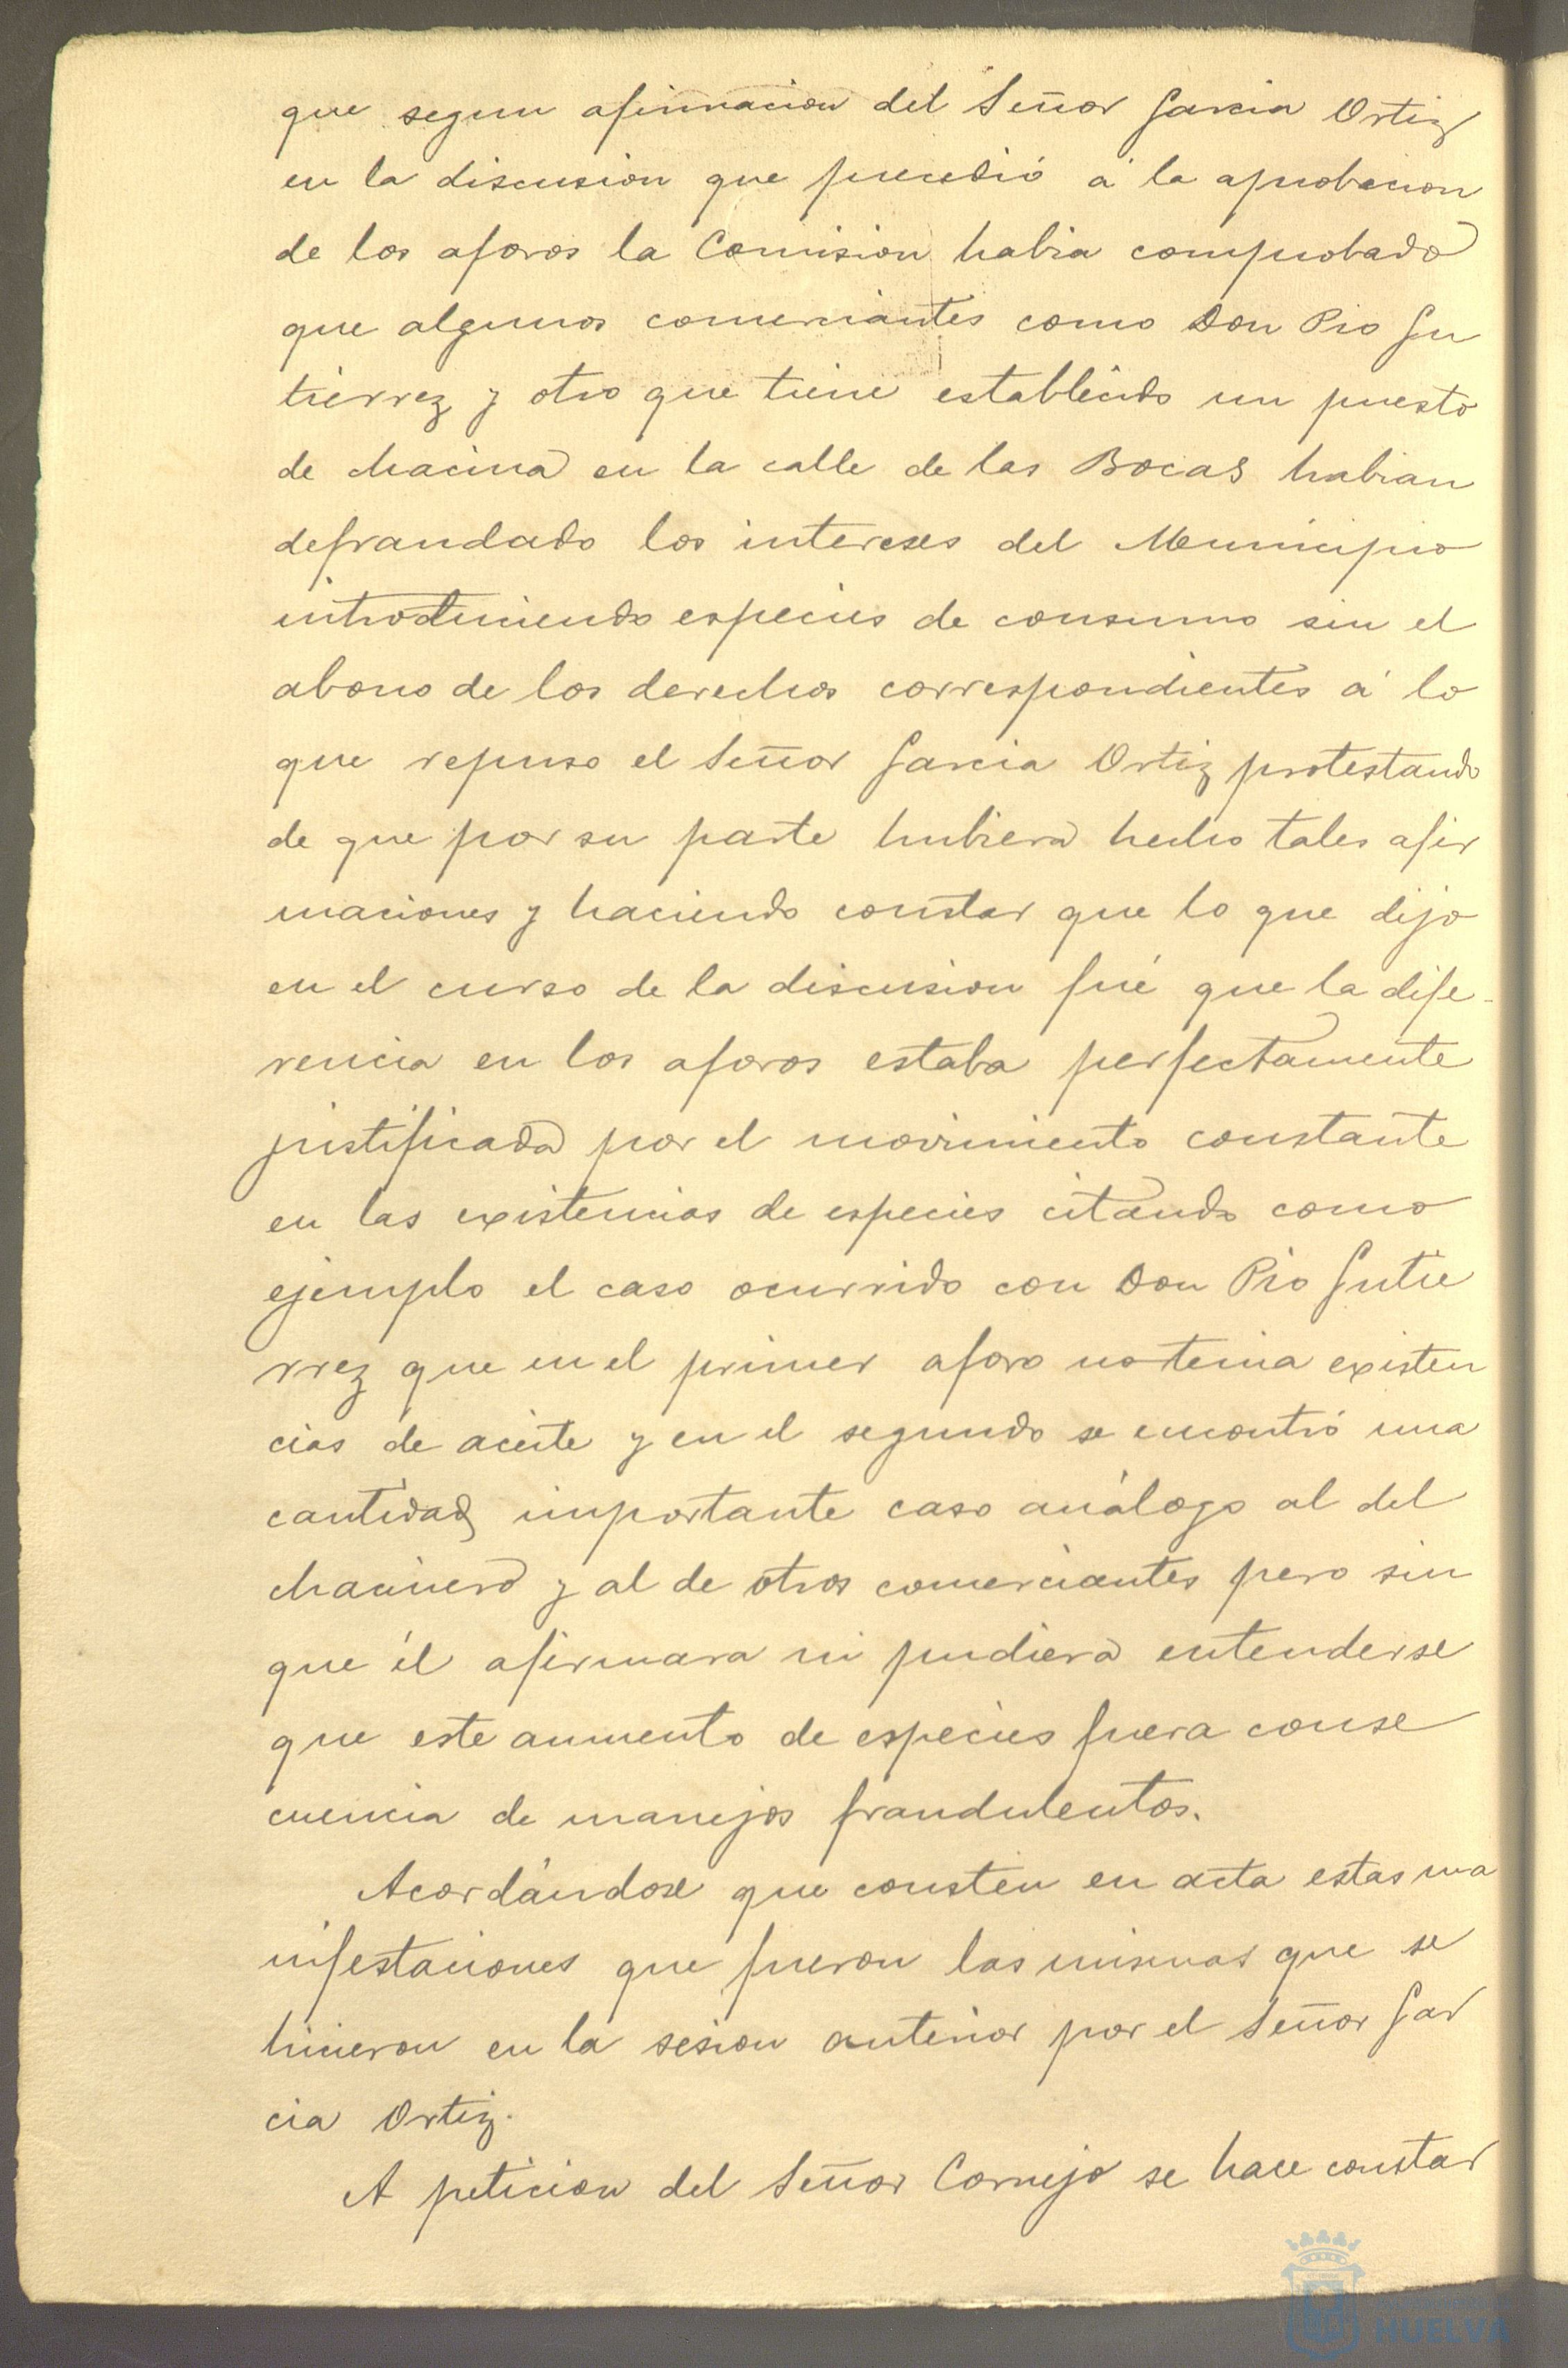 que segun afirmacion del Señor Garcia Ortiz
en la discusion que precedió á la aprobacion
de los aforos la Comision habia comprobado
que algunos comerciantes como Don Pio Gu
tierrez y otro que tiene establecido un puesto
de chacina en la calle de las Bocas habian
defraudado los intereses del Municipio
introduciendo especies de consumo sin el
abono de los derechos correspondientes á lo
que repuso el Señor Garcia Ortiz protestando
de que por su parte hubiera hecho tales afir
maciones y haciendo constar que lo que dijo
en el curso de la discusion fué que la dife-
rencia en los aforos estaba perfectamente
justificada por el movimiento constante
en las existencias de especies citando como
ejemplo el caso ocurrido con Don Pio Gutie
rrez que en el primer aforo no tenia existen
cias de aceite y en el segundo se encontró una
cantidad importante caso análogo al del
chacinero y al de otros comerciantes pero sin
que él afirmara ni pudiera entenderse
que este aumento de especies fuera conse
cuencia de manejos fraudulentos.
Acordándose que consten en acta estas ma
nifestaciones que fueron las mismas que se
hicieron en la sesion anterior por el Señor Gar
cia Ortiz.
A peticion del Señor Cornejo se hace constar
HUELVA